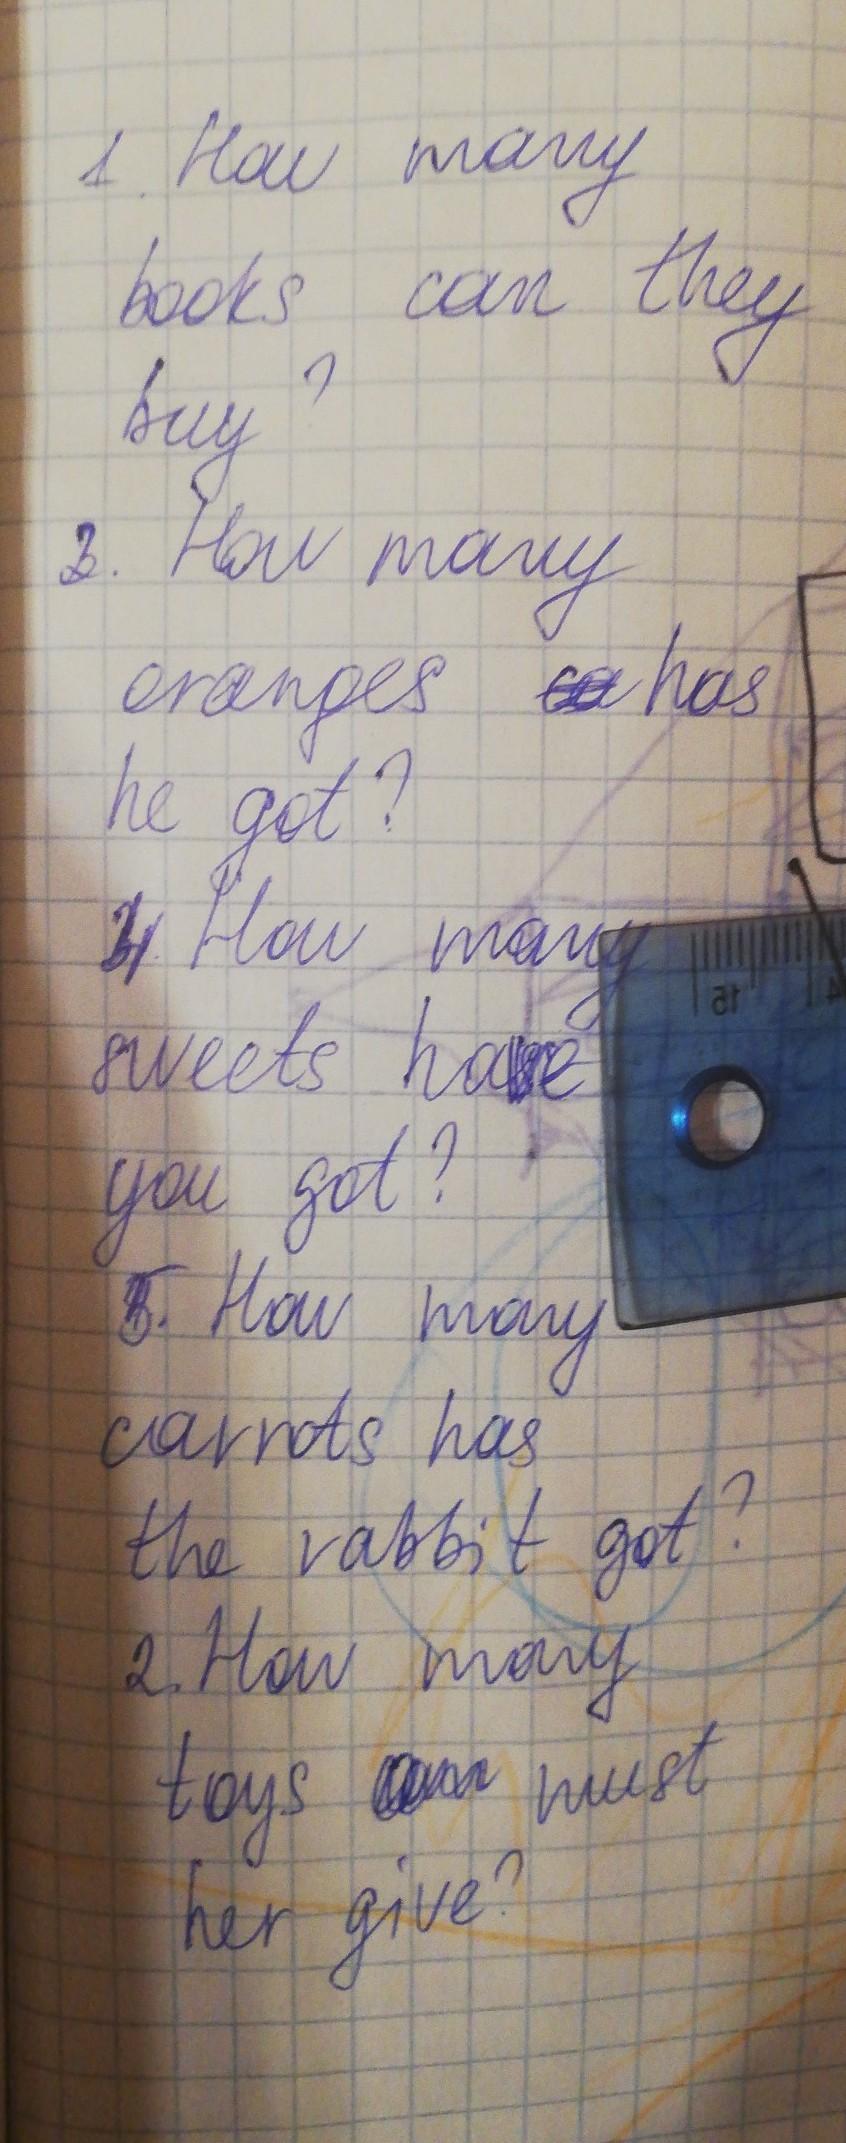 1. How many
books can they
buy?
3. How many
oranges has
he got?
4. How many
sweets have
you got?
5. How many
carrots has
the rabbit got?
2. How many
toys must
her give?
15